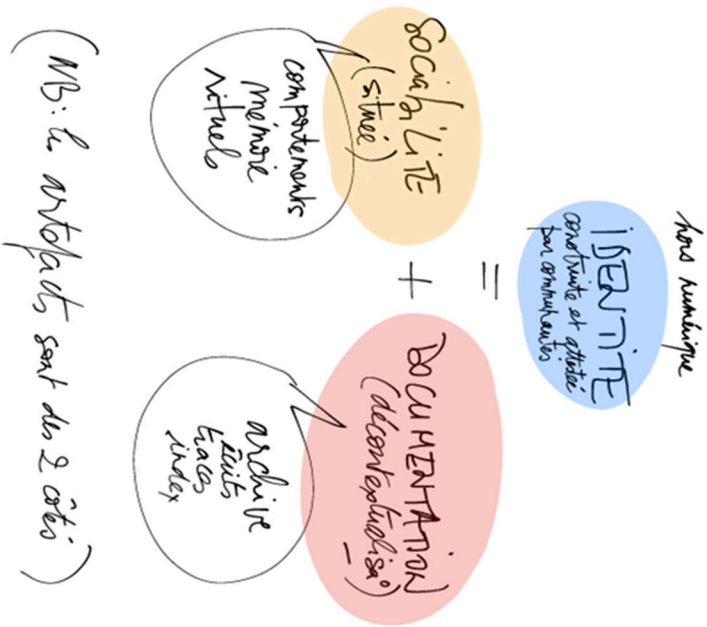 hors numérique
IDENTITÉ
construite et attestée
par communautés
=
SOCIABILITÉ
(située)
+
DOCUMENTATION
(décontextualisa°)
comportements
mémoire
rituels
archive
écrits
traces
index
(NB: les artefacts sont des 2 côtés)